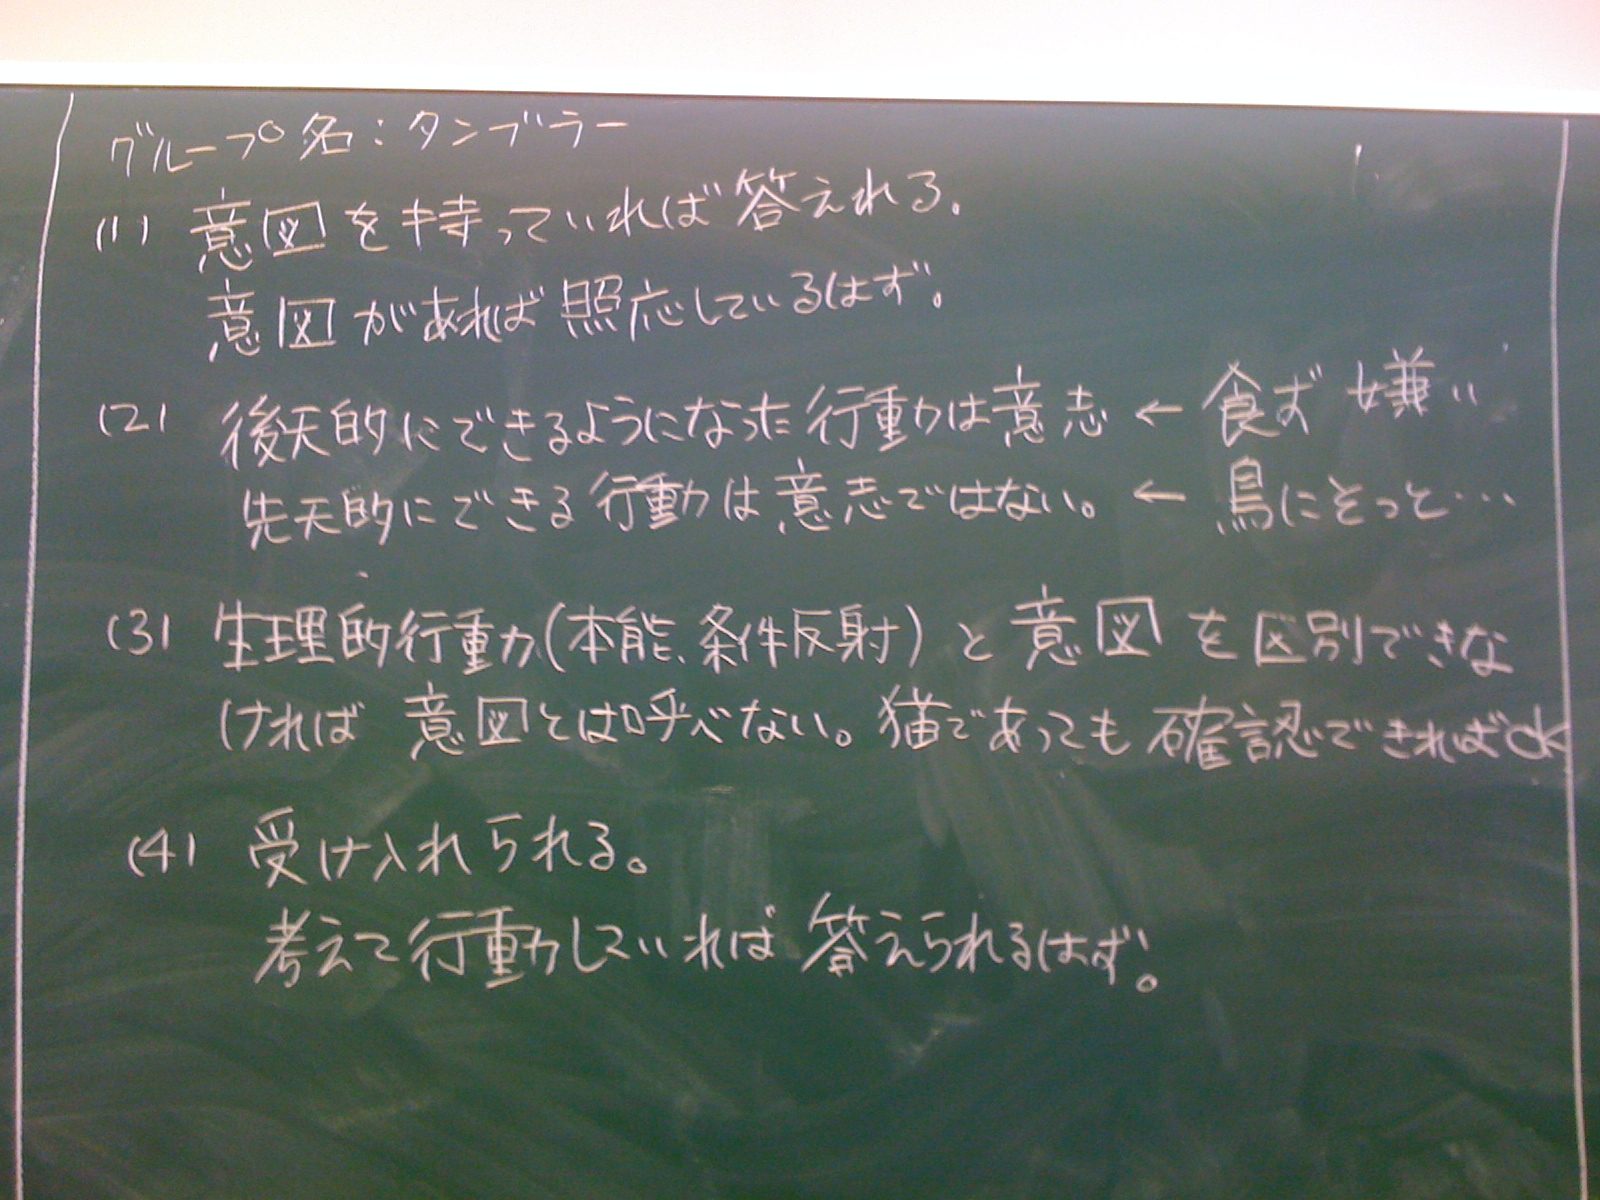 グループ名：タンブラー
(1) 意図を持っていれば答えれる。
意図があれば照応しているはず。
(2) 後天的にできるようになった行動は意志 ← 食ず嫌い
先天的にできる行動は意志ではない。 ← 鳥にそっと…
(3) 生理的行動(本能、条件反射)と意図を区別できな
ければ意図とは呼べない。猫であっても確認できればok
(4) 受け入れられる。
考えて行動していれば答えられるはず。